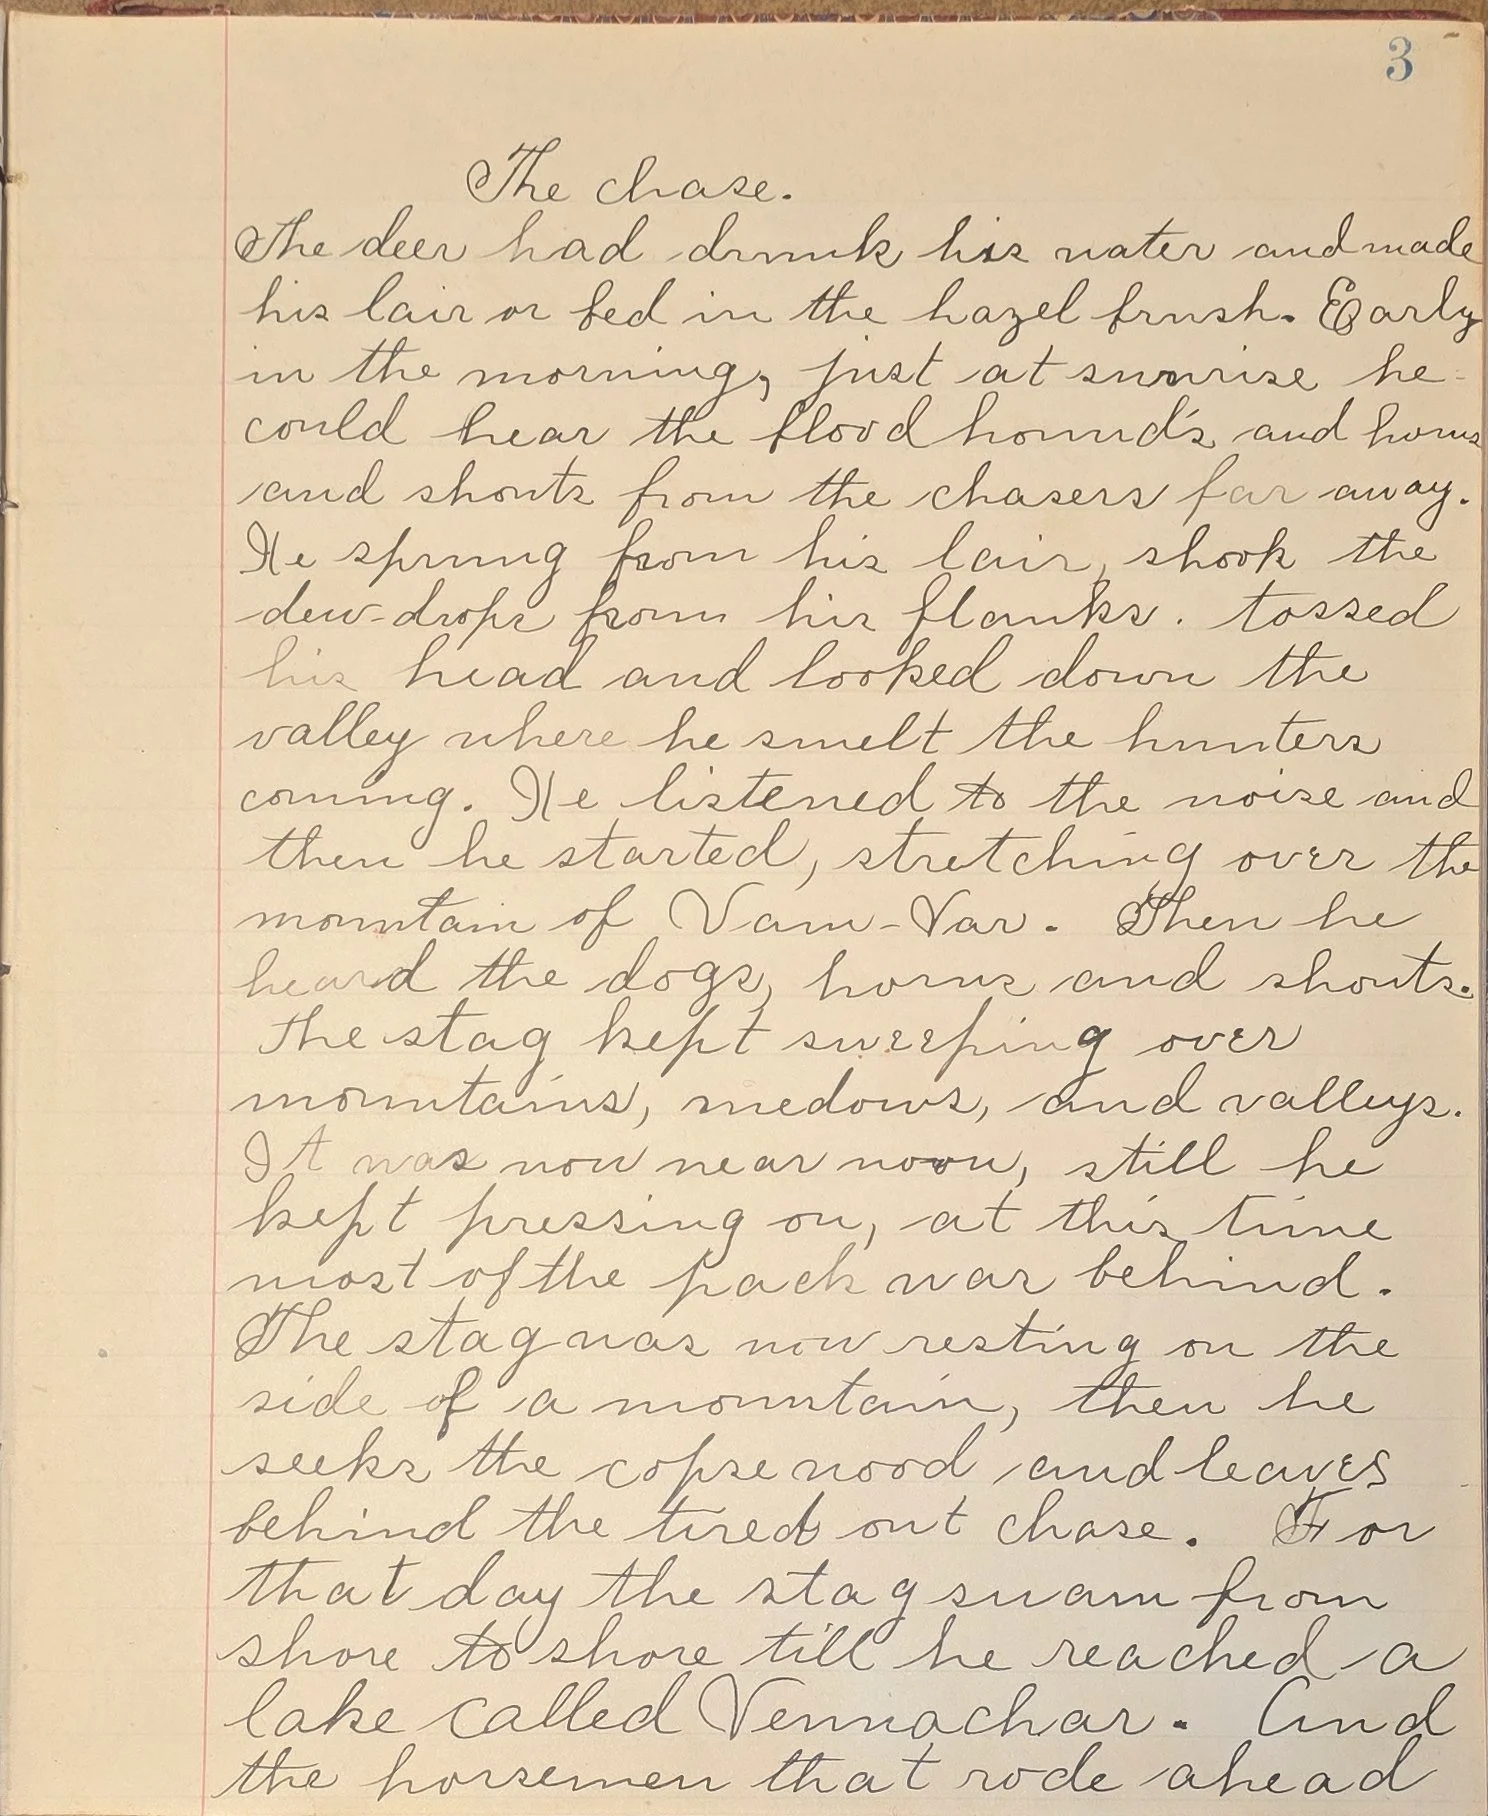 3
The chase.
The deer had drunk his water and made
his lair or bed in the hazel brush. Early
in the morning, just at sunrise he
could hear the blood hound's and horns
and shouts from the chasers far away.
He sprung from his lair, shook the
dew-drops from his flanks. tossed
his head and looked down the
valley where he smelt the hunters
coming. He listened to the noise and
then he started, stretching over the
mountain of Vam-Var. Then he
heard the dogs, horns and shouts.
The stag kept sweeping over
mountains, medows, and valleys.
It was now near noon, still he
kept pressing on, at this time
most of the pack was behind.
The stag was now resting on the
side of a mountain, then he
seeks the copse wood and leaves
behind the tired out chase. For
that day the stag swam from
shore to shore till he reached a
lake called Vennachar. And
the horsemen that rode ahead